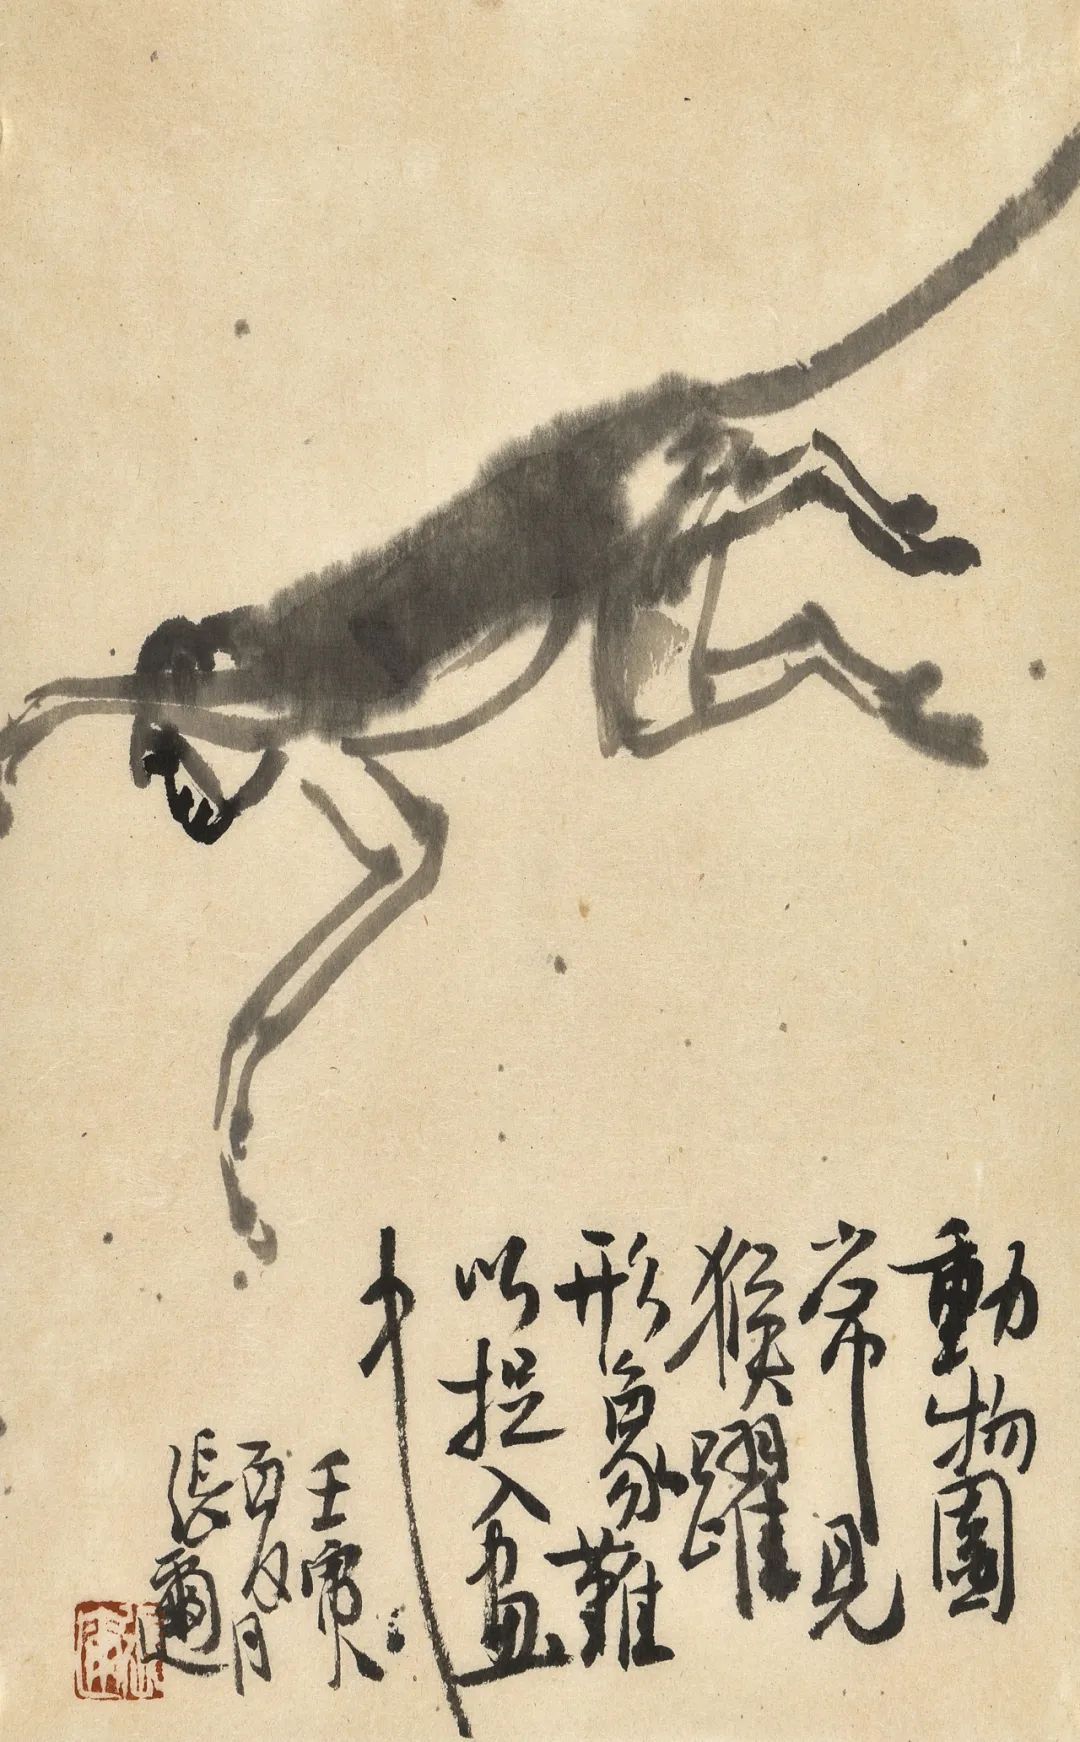 動物園
常見
猴躍
形象難
以捉入畫
中
壬寅
夏月
張